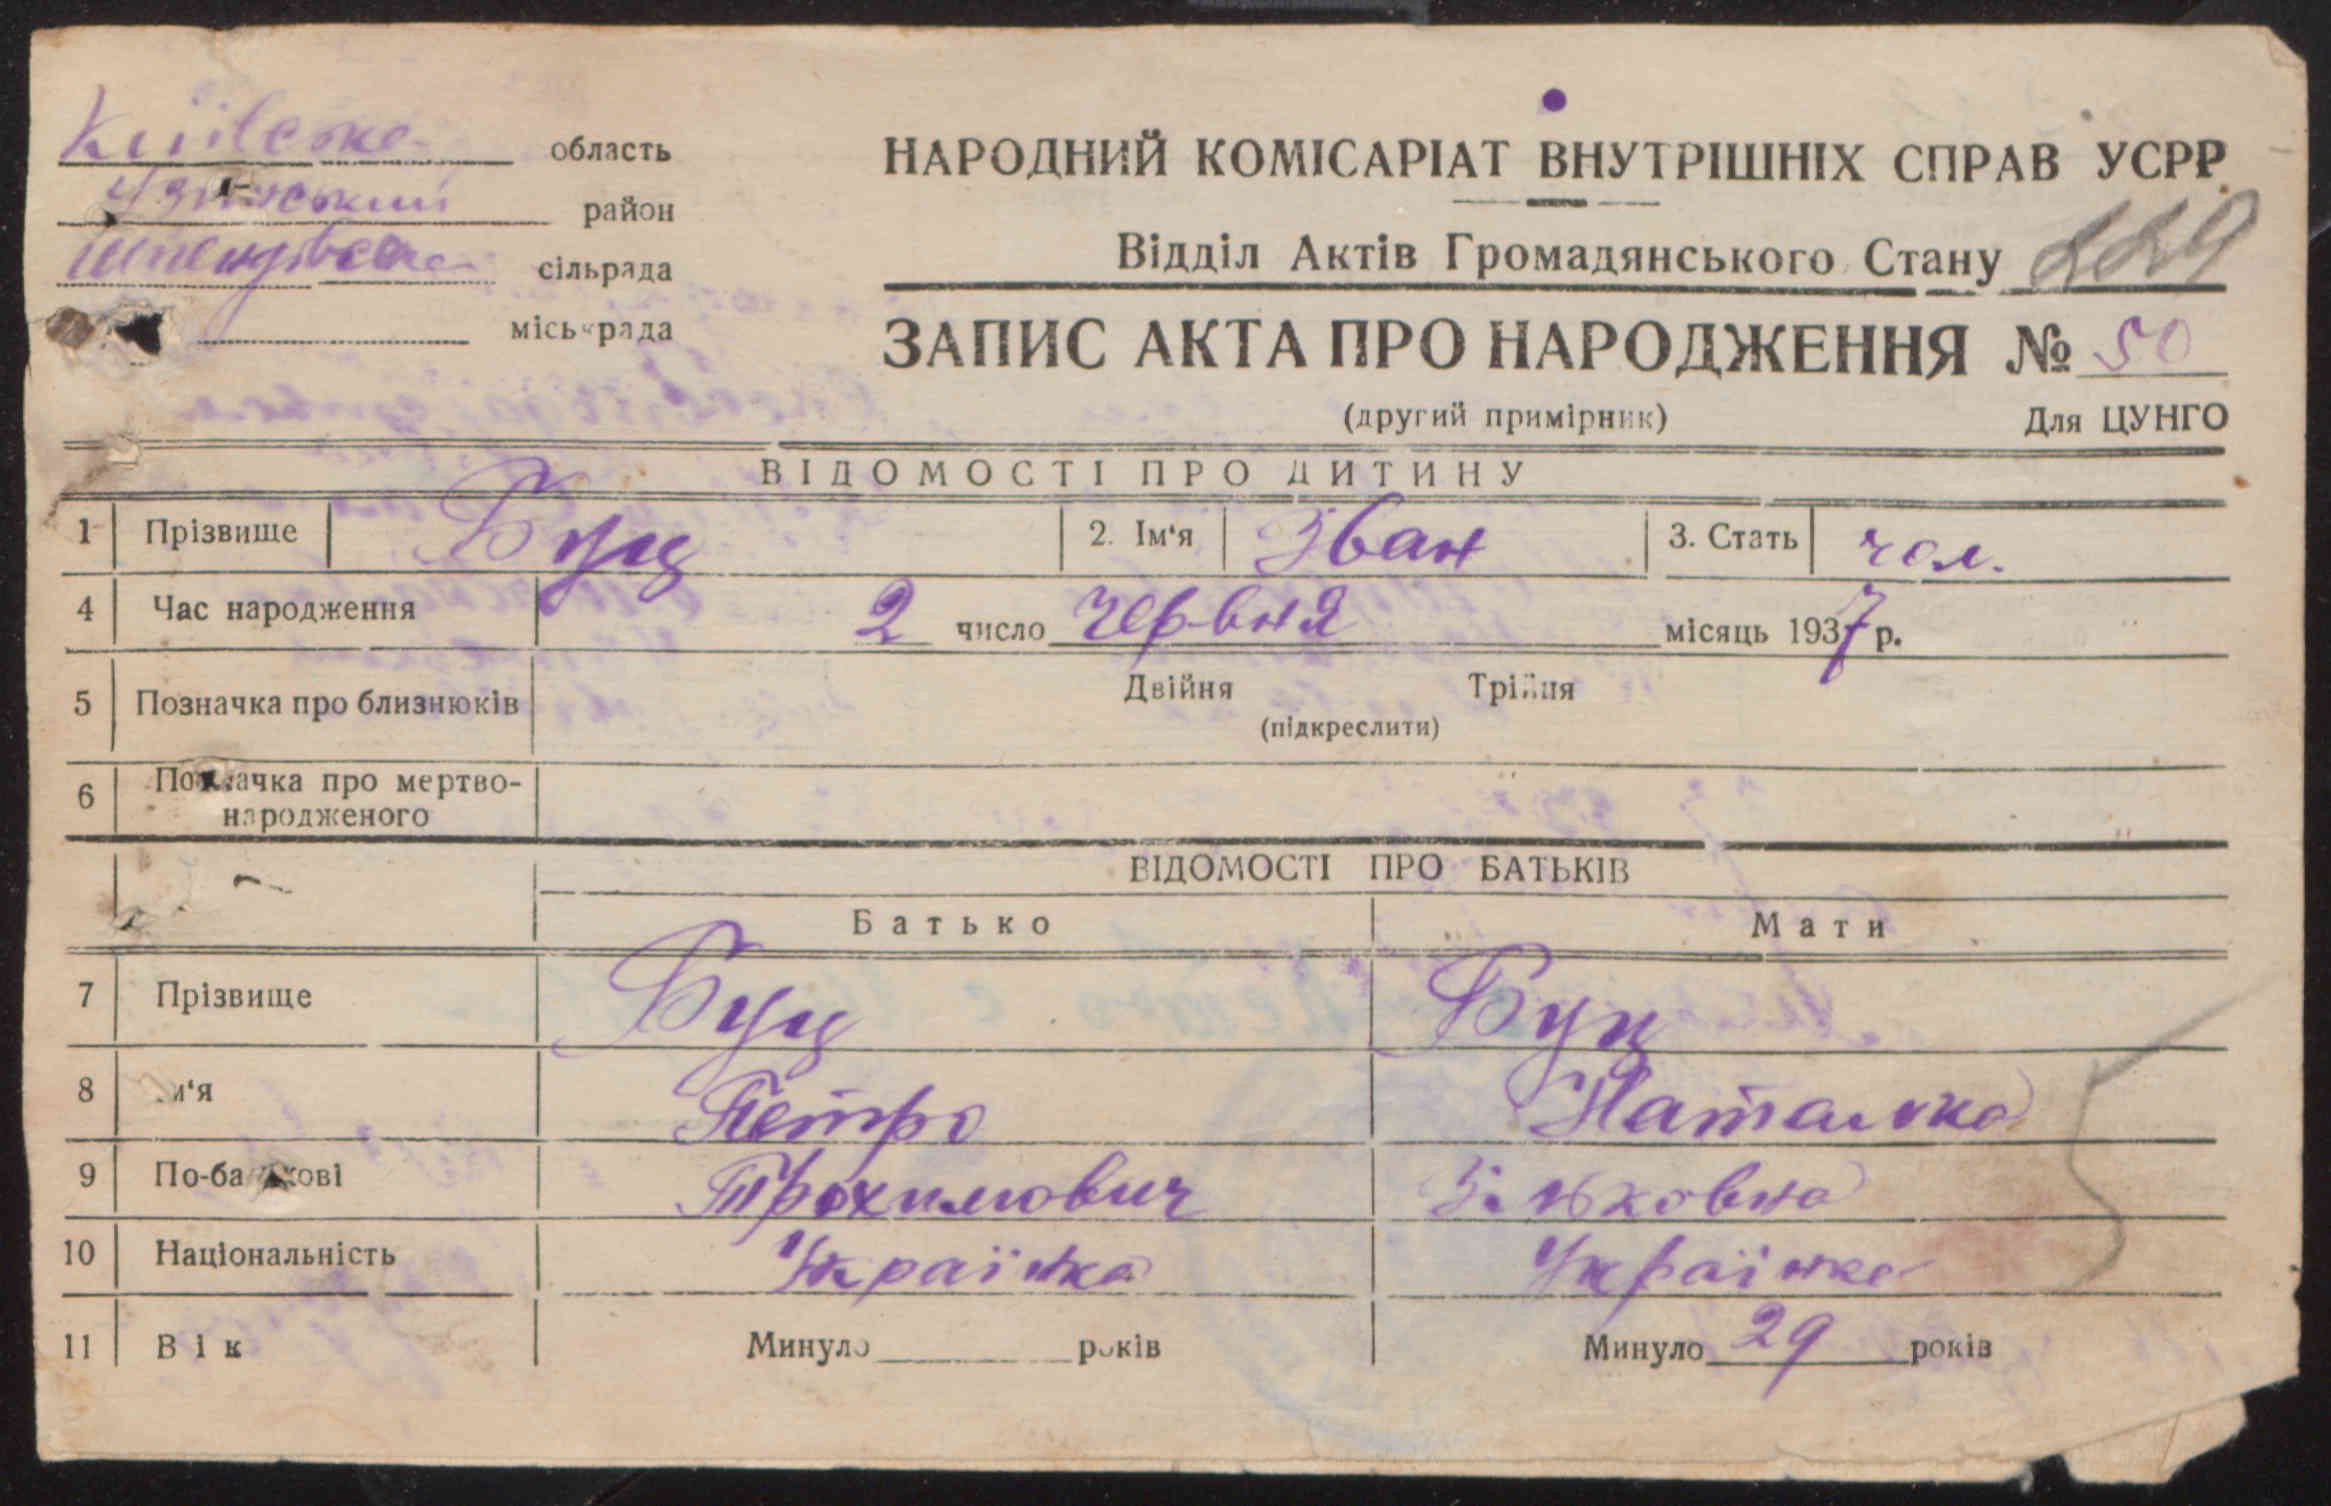 Київська область
Узинський район
Шпендівська сільрада
міськрада
НАРОДНИЙ КОМІСАРІАТ ВНУТРІШНІХ СПРАВ УСРР
Відділ Актів Громадянського Стану
ЗАПИС АКТА ПРО НАРОДЖЕННЯ № 50
(другий примірник) Для ЦУНГО
ВІДОМОСТІ ПРО ДИТИНУ
1 Прізвище Буц 2. Ім'я Іван 3. Стать чол.
4 Час народження 2 число червня місяць 1937 р.
5 Позначка про близнюків Двійня Трійня
(підкреслити)
6 Позначка про мертво-
народженого
ВІДОМОСТІ ПРО БАТЬКІВ
Батько Мати
7 Прізвище Буц Буц
8 Ім'я Петро Наталка
9 По-батькові Трохимович
10 Національність Українка Українка
11 Вік Минуло років Минуло 29 років